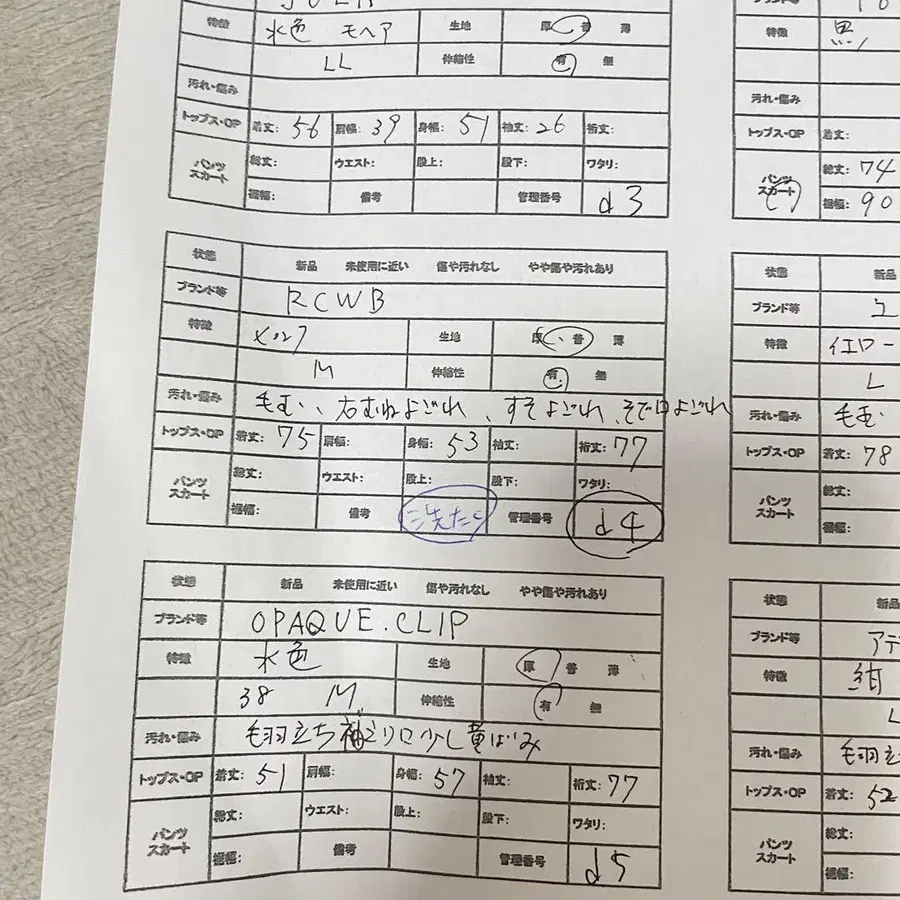 特徴 水色 モヘア 生地 厚 普 薄
LL 伸縮性 有 無
汚れ・傷み
トップス・OP 着丈: 56 肩幅: 39 身幅: 51 袖丈: 26 裄丈:
パンツ スカート 総丈: ウエスト: 股上: 股下: ワタリ:
裾幅: 備考 管理番号 d3
状態 新品 未使用に近い 傷や汚れなし やや傷や汚れあり
ブランド等 RCWB
特徴 生地 厚 普 薄
M 伸縮性 有 無
汚れ・傷み 毛玉、右むねよごれ、すそよごれ、そで口よごれ
トップス・OP 着丈: 75 肩幅: 身幅: 53 袖丈: 裄丈: 77
パンツ スカート 総丈: ウエスト: 股上: 股下: ワタリ:
裾幅: 備考 管理番号 d4
状態 新品 未使用に近い 傷や汚れなし やや傷や汚れあり
ブランド等 OPAQUE.CLIP
特徴 水色 生地 厚 普 薄
38 M 伸縮性 有 無
汚れ・傷み 毛羽立ち 袖えり口少し黄ばみ
トップス・OP 着丈: 51 肩幅: 身幅: 57 袖丈: 裄丈: 77
パンツ スカート 総丈: ウエスト: 股上: 股下: ワタリ:
裾幅: 備考 管理番号 d5
特徴 黒
汚れ・傷み
トップス・OP 着丈:
パンツ スカート 総丈: 74
裾幅: 90
状態 新品
ブランド等 ユ
特徴 イエロー
L
汚れ・傷み 毛玉
トップス・OP 着丈: 78
パンツ スカート 総丈:
裾幅:
状態 新品
ブランド等 アデ
特徴 紺
L
汚れ・傷み 毛羽立
トップス・OP 着丈: 52
パンツ スカート 総丈:
裾幅: